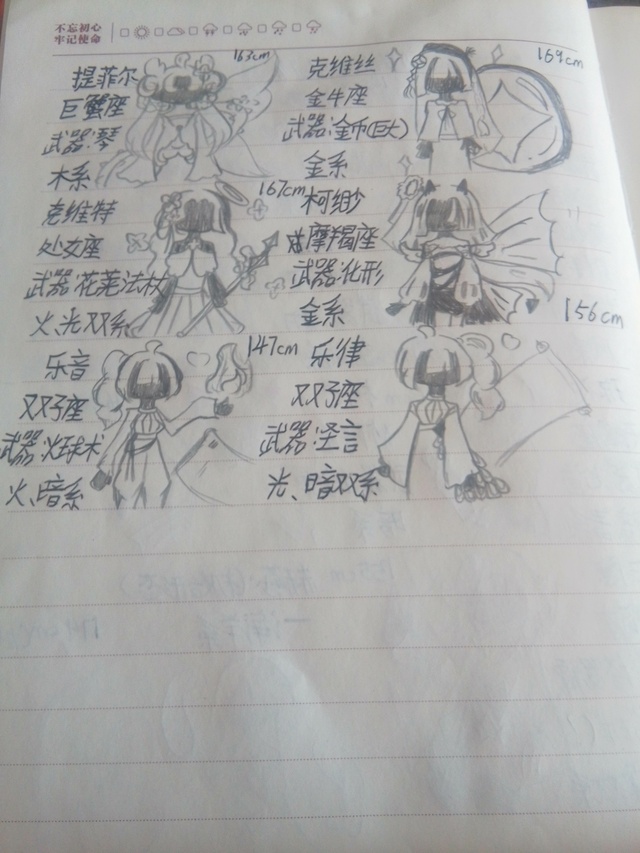 不忘初心
牢记使命
提菲尔
163cm
巨蟹座
武器:琴
木系
克维丝
169cm
金牛座
武器:金币(巨大)
金系
克维特
167cm
处女座
武器:花芜法杖
火、光双系
柯缈
摩羯座
武器:化形
金系
156cm
乐音
147cm
双子座
武器:火球术
火、暗系
乐律
双子座
武器:圣言
光、暗双系